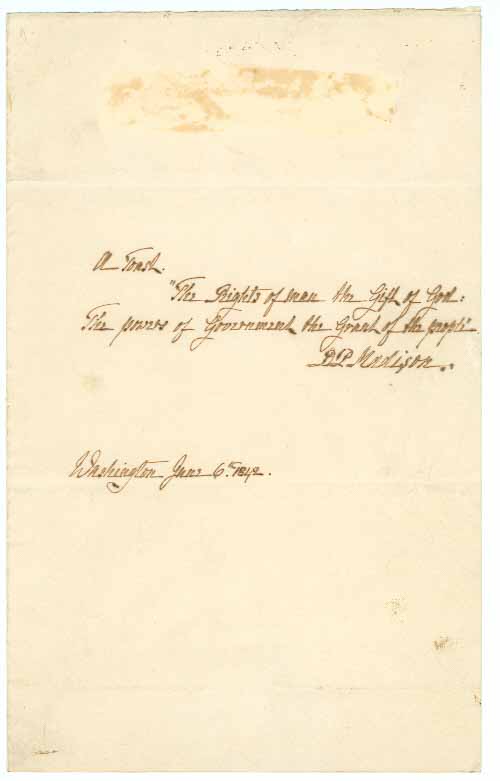 A Toast.
"The Rights of man the Gift of God:
The powers of Government the Grant of the people"
D. P. Madison.
Washington June 6th. 1842.